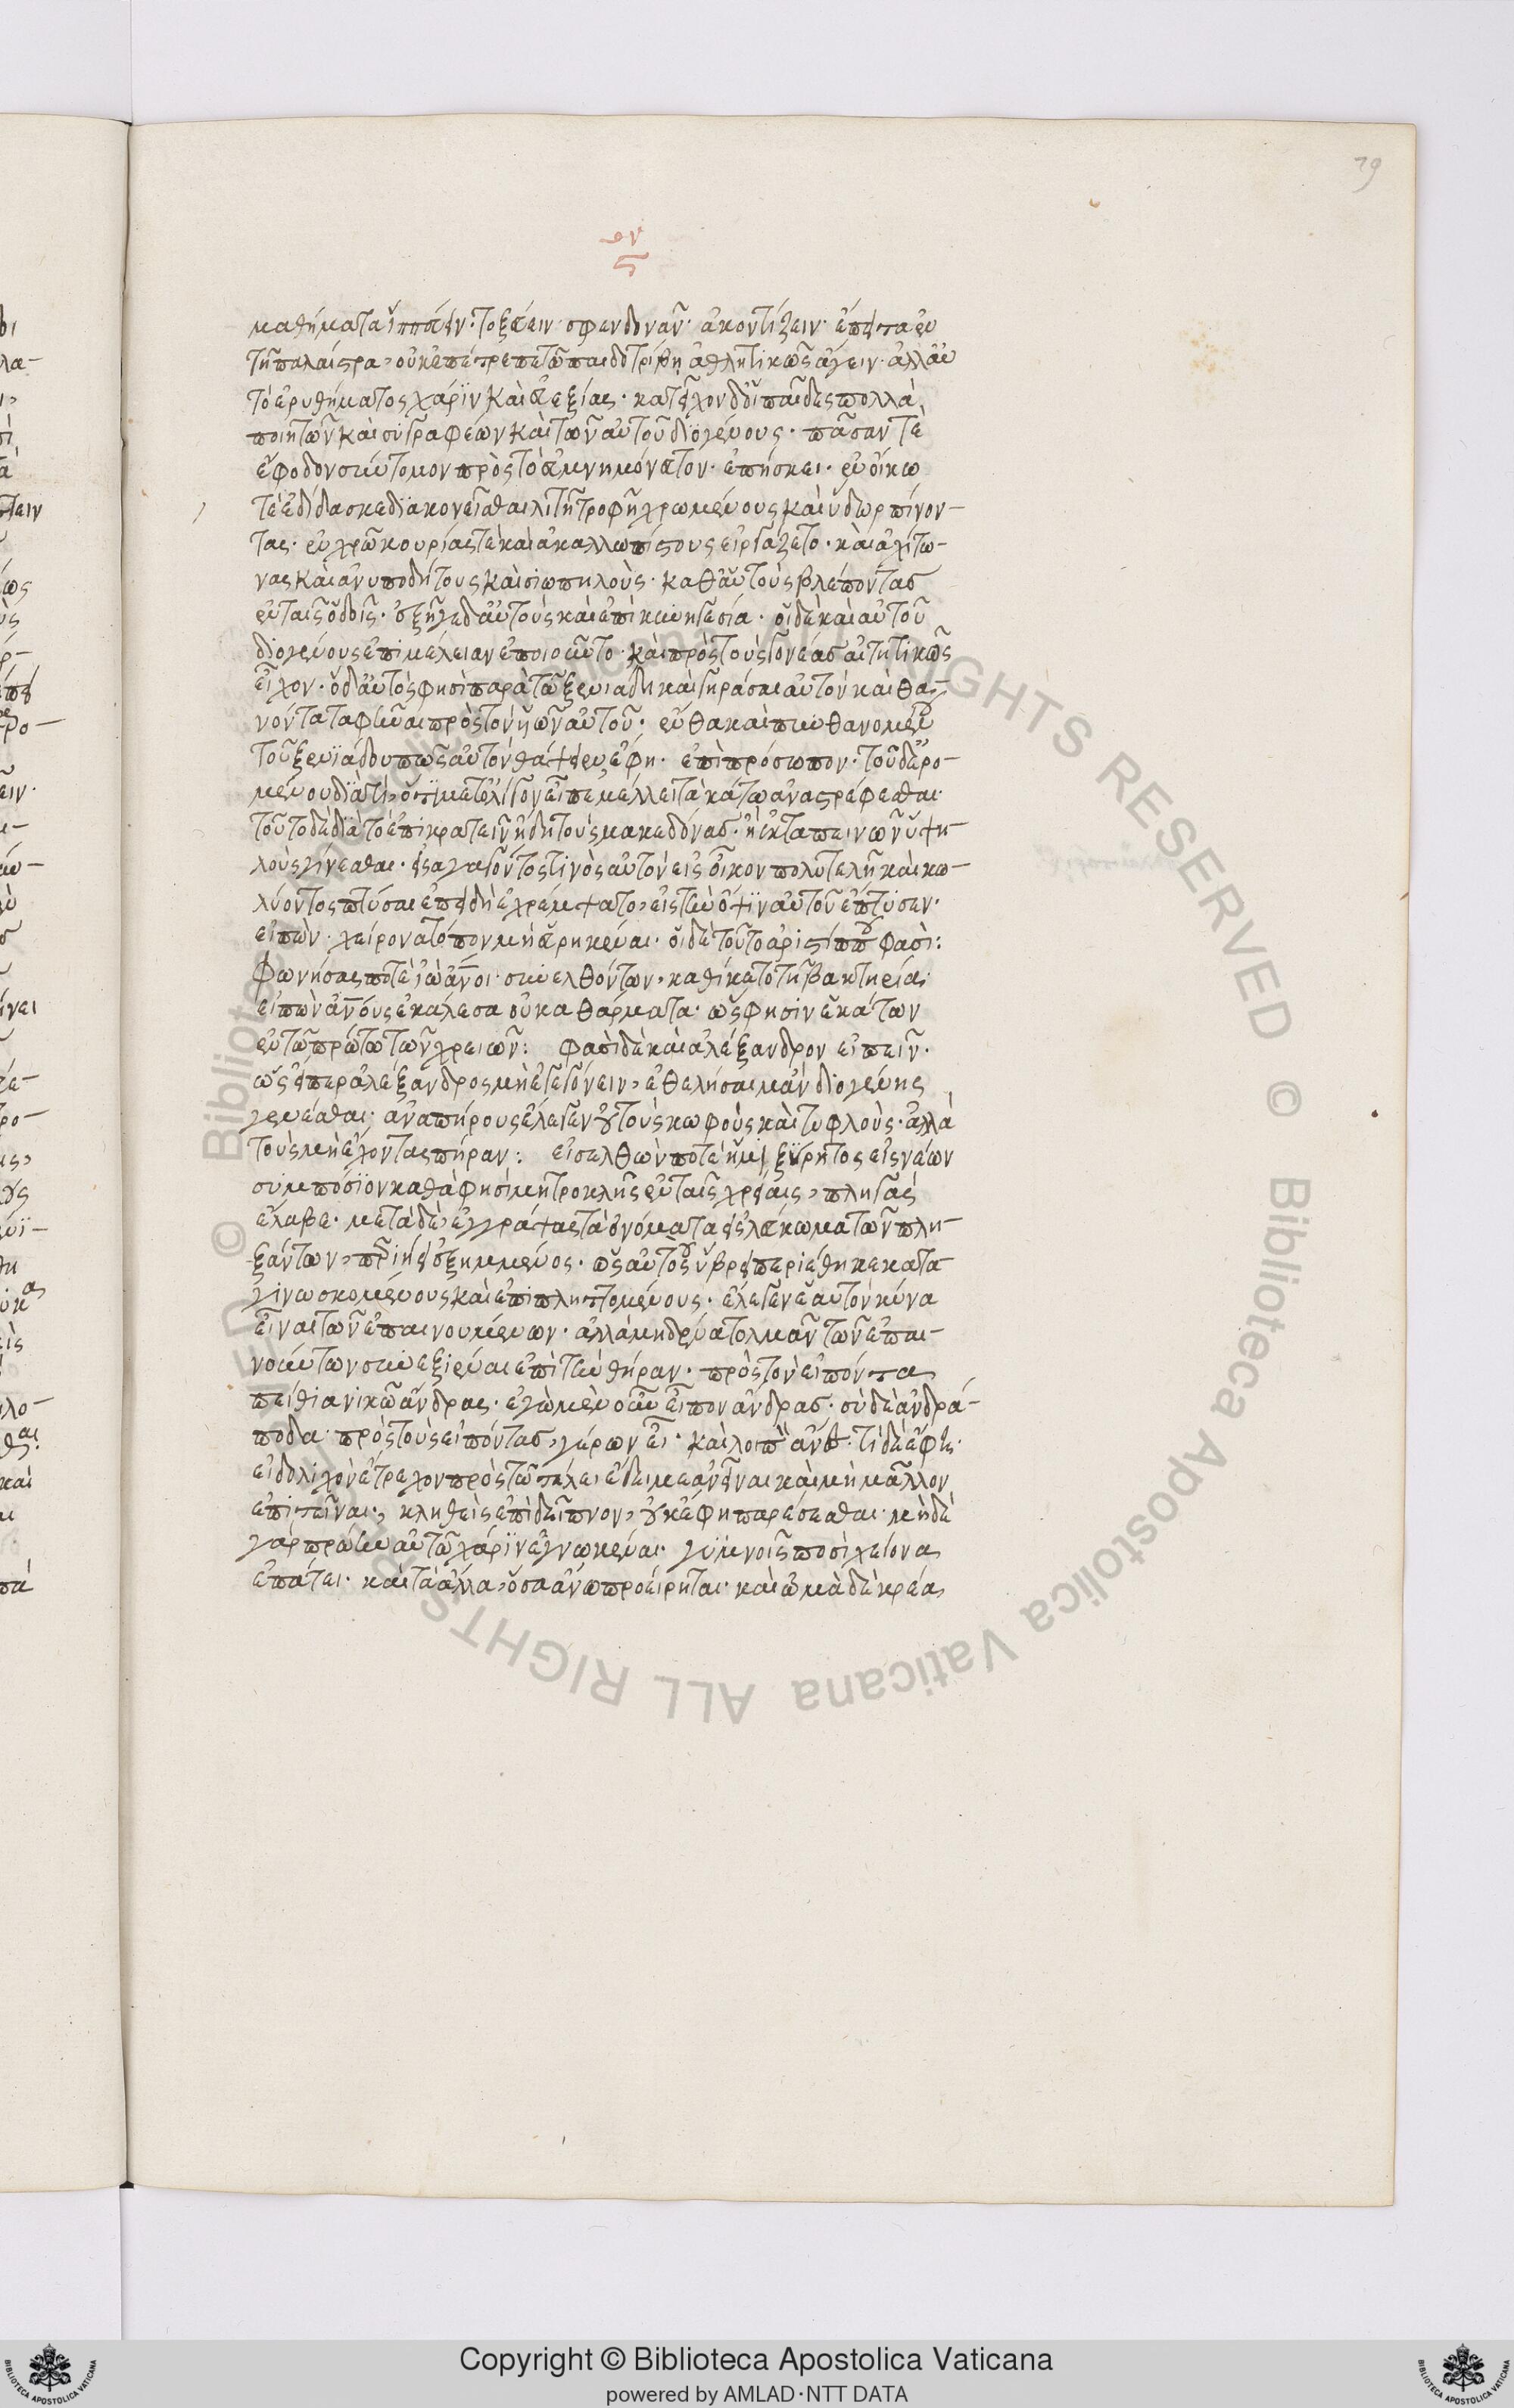 79
μαθήματα ἱππεύειν· τοξεύειν· σφενδονᾶν· ἀκοντίζειν· ἔπειτα ἐν
τῆ παλαίστρα, οὐκ ἐπέτρεπε τῶ παιδοτρίβη ἀθλητικῶς ἄγειν· ἀλλ' αὐ
τὸ ἐρυθήματος χάριν καὶ εὐεξίας· κατεῖχον δὲ οἱ παῖδες πολλὰ
ποιητῶν καὶ συγγραφέων καὶ τῶν αὐτοῦ διογένους· πᾶσαν τὲ
ἔφοδον σύντομον πρὸς τὸ εὐμνημόνευτον· ἐπήσκει· ἐν οἴκω
τὲ ἐδίδασκε διακονεῖσθαι λιτῆ τροφῆ χρωμένους καὶ ὕδωρ πίνον-
τας· ἐν χρῶ κουρίας τὲ καὶ ἀκαλλωπίστους εἰργάζετο· καὶ ἀχίτω-
νας καὶ ἀνυποδήτους καὶ σιωπηλοὺς· καθ' αὑτοὺς βλέποντας
ἐν ταῖς ὁδοῖς· ἐξῆγε δ' αὐτοὺς καὶ ἐπὶ κυνηγεσία· οἱ δὲ καὶ αὐτοῦ
διογένους ἐπιμέλειαν ἐποιοῦντο· καὶ πρὸς τοὺς γονέας αἰτητικῶς
εἶχον· ὁ δ' αὐτός φησὶ παρὰ τῶ ξενιάδη καὶ γηράσαι αὐτὸν καὶ θα-
νόντα ταφῆναι πρὸς τῶν υἱῶν αὐτοῦ· ἔνθα καὶ πυνθανομένου
τοῦ ξενιάδου πῶς αὐτὸν θάψειεν, ἔφη· ἐπὶ πρόσωπον· τοῦ δ' ἐρο-
μένου διατί, ὅτι μετ' ὀλίγον εἶπε μέλλει τὰ κάτω ἀναστρέφεσθαι·
τοῦτο δὲ διὰ τὸ ἐπικρατεῖν ἤδη τοὺς μακεδόνας· ἢ ἐκ ταπεινῶν ὑψη-
λοὺς γίνεσθαι· εἰσαγαγόντος τινὸς αὐτὸν εἰς οἶκον πολυτελῆ καὶ κω-
λύοντος πτύσαι ἐπειδὴ ἐχρέμψατο, εἰς τὴν ὄψιν αὐτοῦ ἔπτυσεν·
εἰπὼν· χείρονα τόπον μὴ εὑρηκέναι· οἱ δὲ τοῦτο ἀριστίππου φασὶ:
φωνήσας ποτὲ ἰὼ ἄνοι· συνελθόντων, καθίκετο τῆ βακτηρία·
εἰπὼν ἀνους ἐκάλεσα οὐ καθάρματα· ὥς φησιν ἑκάτων
ἐν τῶ πρώτω τῶν χρειῶν: φασὶ δὲ καὶ ἀλέξανδρον εἰπεῖν·
ὡς εἴπερ ἀλέξανδρος μὴ ἐγεγόνειν, ἐθελῆσαι μ' ἂν διογένης
γενέσθαι· ἀναπήρους ἔλεγεν οὐ τοὺς κωφοὺς καὶ τυφλοὺς· ἀλλὰ
τοὺς μὴ ἔχοντας πήραν: εἰσελθών ποτε ἡμιξύρητος εἰς νέων
συμπόσιον καθά φησι μητροκλῆς ἐν ταῖς χρείαις, πληγὰς
ἔλαβε· μετὰ δὲ, ἐγγράψας τὰ ὀνόματα εἰς λεύκωμα τῶν πλη-
ξάντων, περιήει ἐξημμένος· ὡς αὐτοὺς ὕβρει περιέθηκε κατα
γινωσκομένους καὶ ἐπιπληττομένους· ἔλεγεν ἑαυτὸν κύνα
εἶναι τῶν ἐπαινουμένων· ἀλλὰ μηδένα τολμᾶν τῶν ἐπαι-
νούντων συνεξιέναι ἐπὶ τὴν θήραν· πρὸς τὸν εἰπόντα
πύθια νικῶ ἄνδρας· ἐγὼ μὲν οὖν εἶπον ἄνδρας· σὺ δὲ ἀνδρά-
ποδα· πρὸς τοὺς εἰπόντας, γέρων εἶ· καὶ λοιπὸν ἄνες· τί δὲ ἔφη·
εἰ δολιχὸν ἔτρεχον πρὸς τῶ τέλει ἔδει με ἀνεῖναι καὶ μὴ μᾶλλον
ἐπιτεῖναι, κληθεὶς ἐπὶ δεῖπνον, οὐκ ἔφη παρέσεσθαι· μηδὲ
γὰρ πρώην αὐτῶ χάριν ἐγνωκέναι· γυμνοῖς ποσὶ χιόνα
ἐπάτει· καὶ τὰ ἄλλα, ὅσα ἄνω προείρηται· καὶ ὠμὰ δὲ κρέα
© Biblioteca Apostolica Vaticana ALL RIGHTS RESERVED
Copyright © Biblioteca Apostolica Vaticana
powered by AMLAD·NTT DATA
BIBLIOTECA APOSTOLICA VATICANA
BIBLIOTECA APOSTOLICA VATICANA